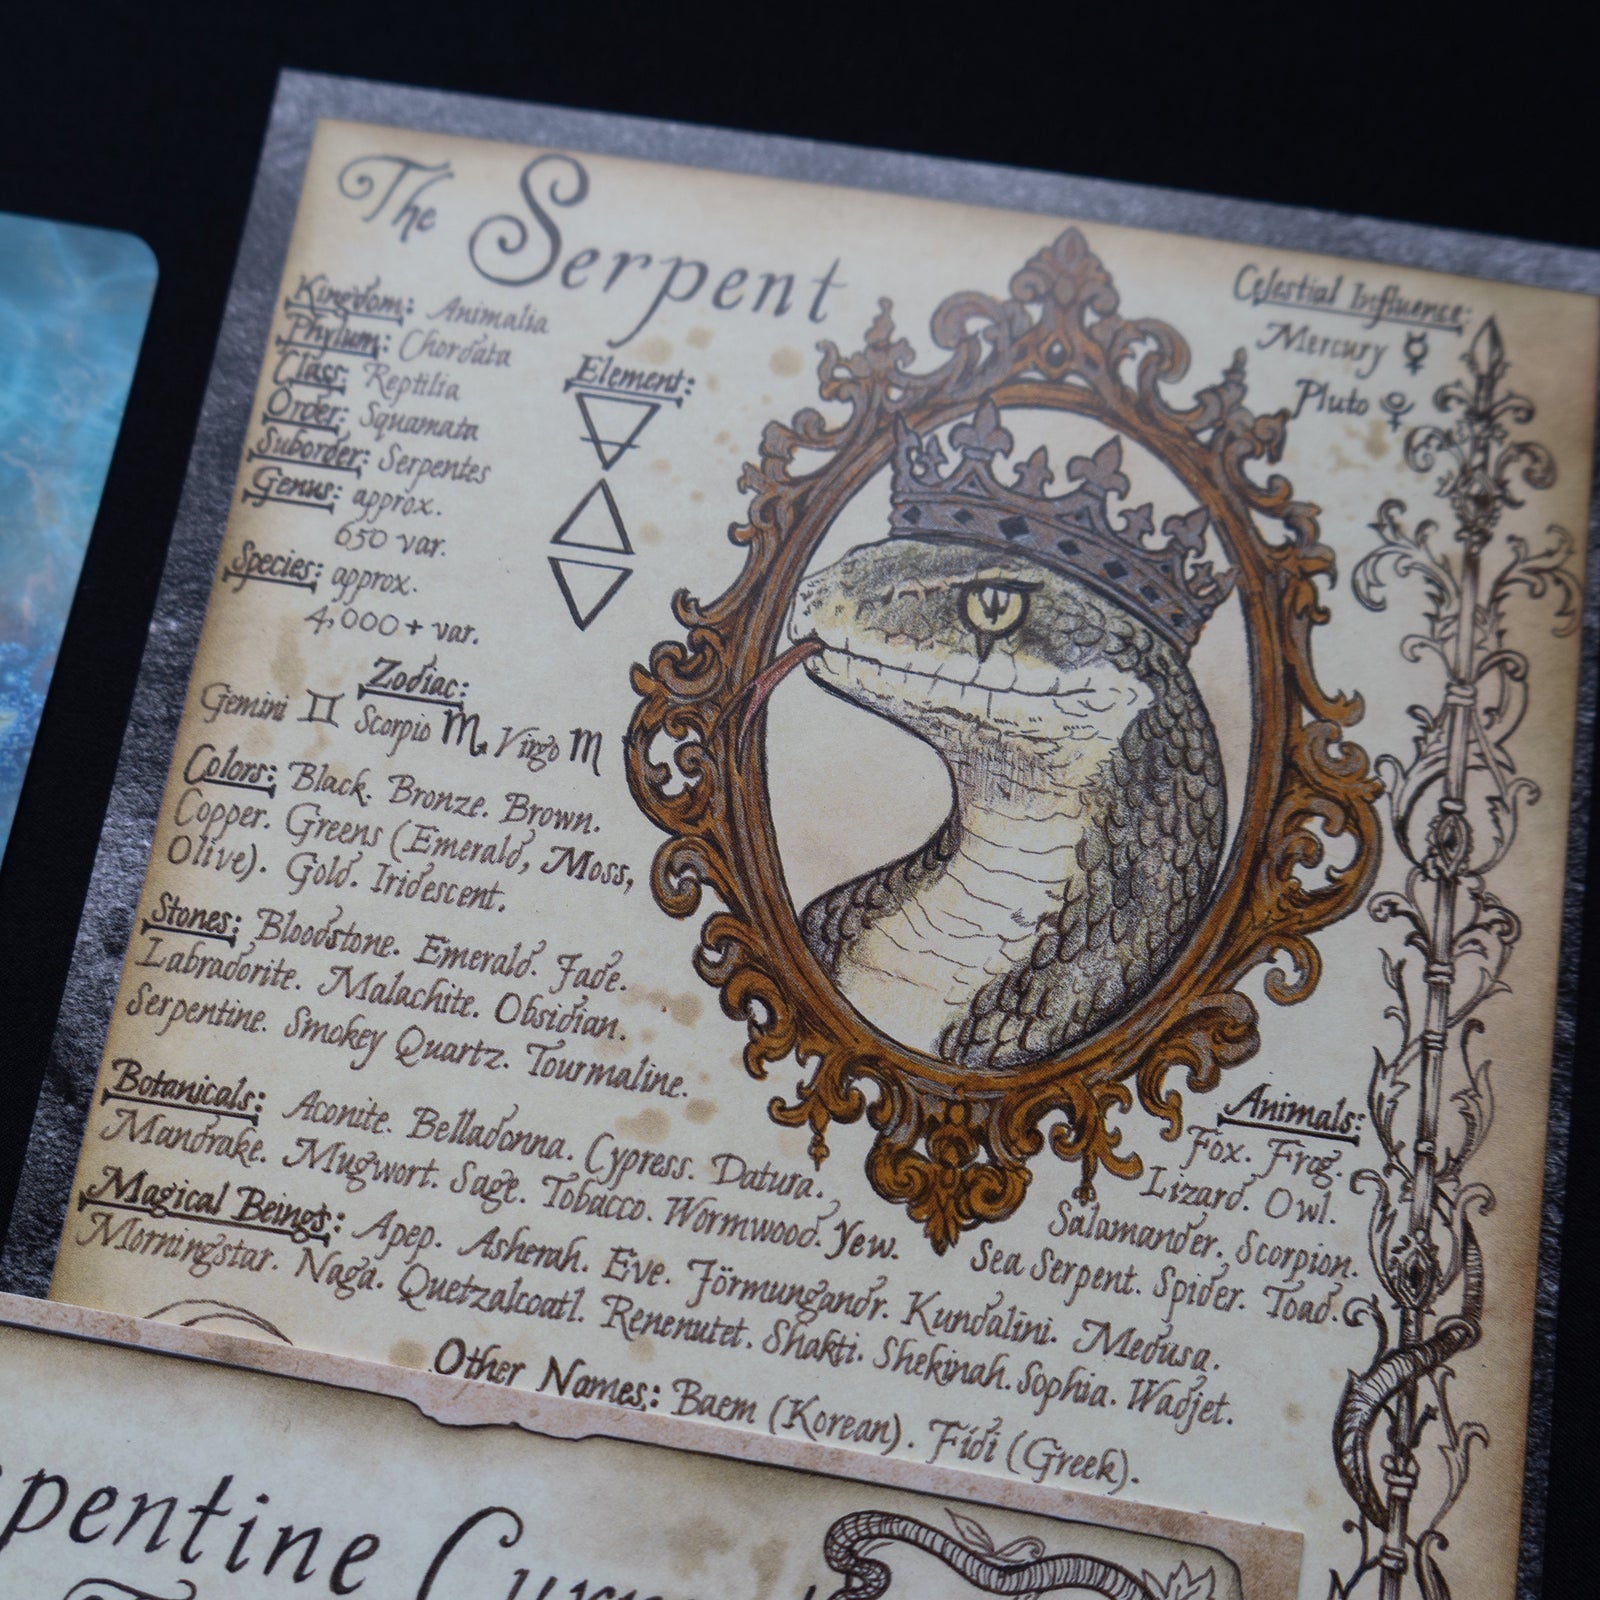 The Serpent
Kingdom: Animalia
Phylum: Chordata
Class: Reptilia
Order: Squamata
Suborder: Serpentes
Genus: approx.
650 var.
Species: approx.
4,000+ var.
Element:
Celestial Influence:
Mercury ☿
Pluto ♇
Zodiac:
Gemini ♊ Scorpio ♏ Virgo ♍
Colors: Black. Bronze. Brown.
Copper. Greens (Emerald, Moss,
Olive). Gold. Iridescent.
Stones: Bloodstone. Emerald. Jade.
Labradorite. Malachite. Obsidian.
Serpentine. Smokey Quartz. Tourmaline.
Botanicals: Aconite. Belladonna. Cypress. Datura.
Mandrake. Mugwort. Sage. Tobacco. Wormwood. Yew.
Animals:
Fox. Frog.
Lizard. Owl.
Salamander. Scorpion.
Sea Serpent. Spider. Toad.
Magical Beings: Apep. Asherah. Eve. Jörmungandr. Kundalini. Medusa.
Morningstar. Naga. Quetzalcoatl. Renenutet. Shakti. Shekinah. Sophia. Wadjet.
Other Names: Baem (Korean). Fídi (Greek).
pentine